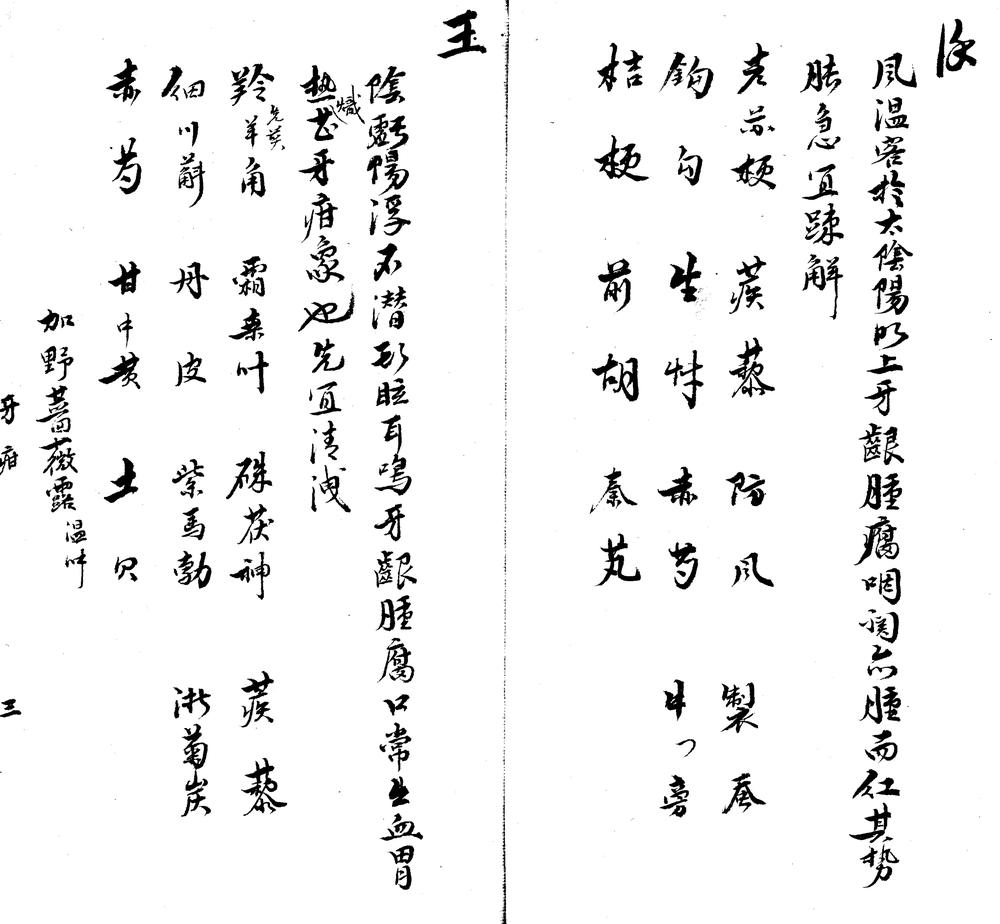 徐
風溫客於太陰陽明上牙齦腫腐咽關亦腫而紅其勢
脹急宜疎解
老蘇梗 蒺藜 防風 製蚕
鈎勾 生草 赤芍 牛旁
桔梗 前胡 秦艽
王
陰虧陽浮不潜形眩耳鳴牙齦腫腐口常出血胃
热熾甚牙疳象也先宜清洩
羚羊角先煎 霜桑叶 硃茯神 蒺藜
细川斛 丹皮 紫馬勃 浙菊炭
赤芍 甘中黄 土貝
加野薔薇露温冲
牙疳
三